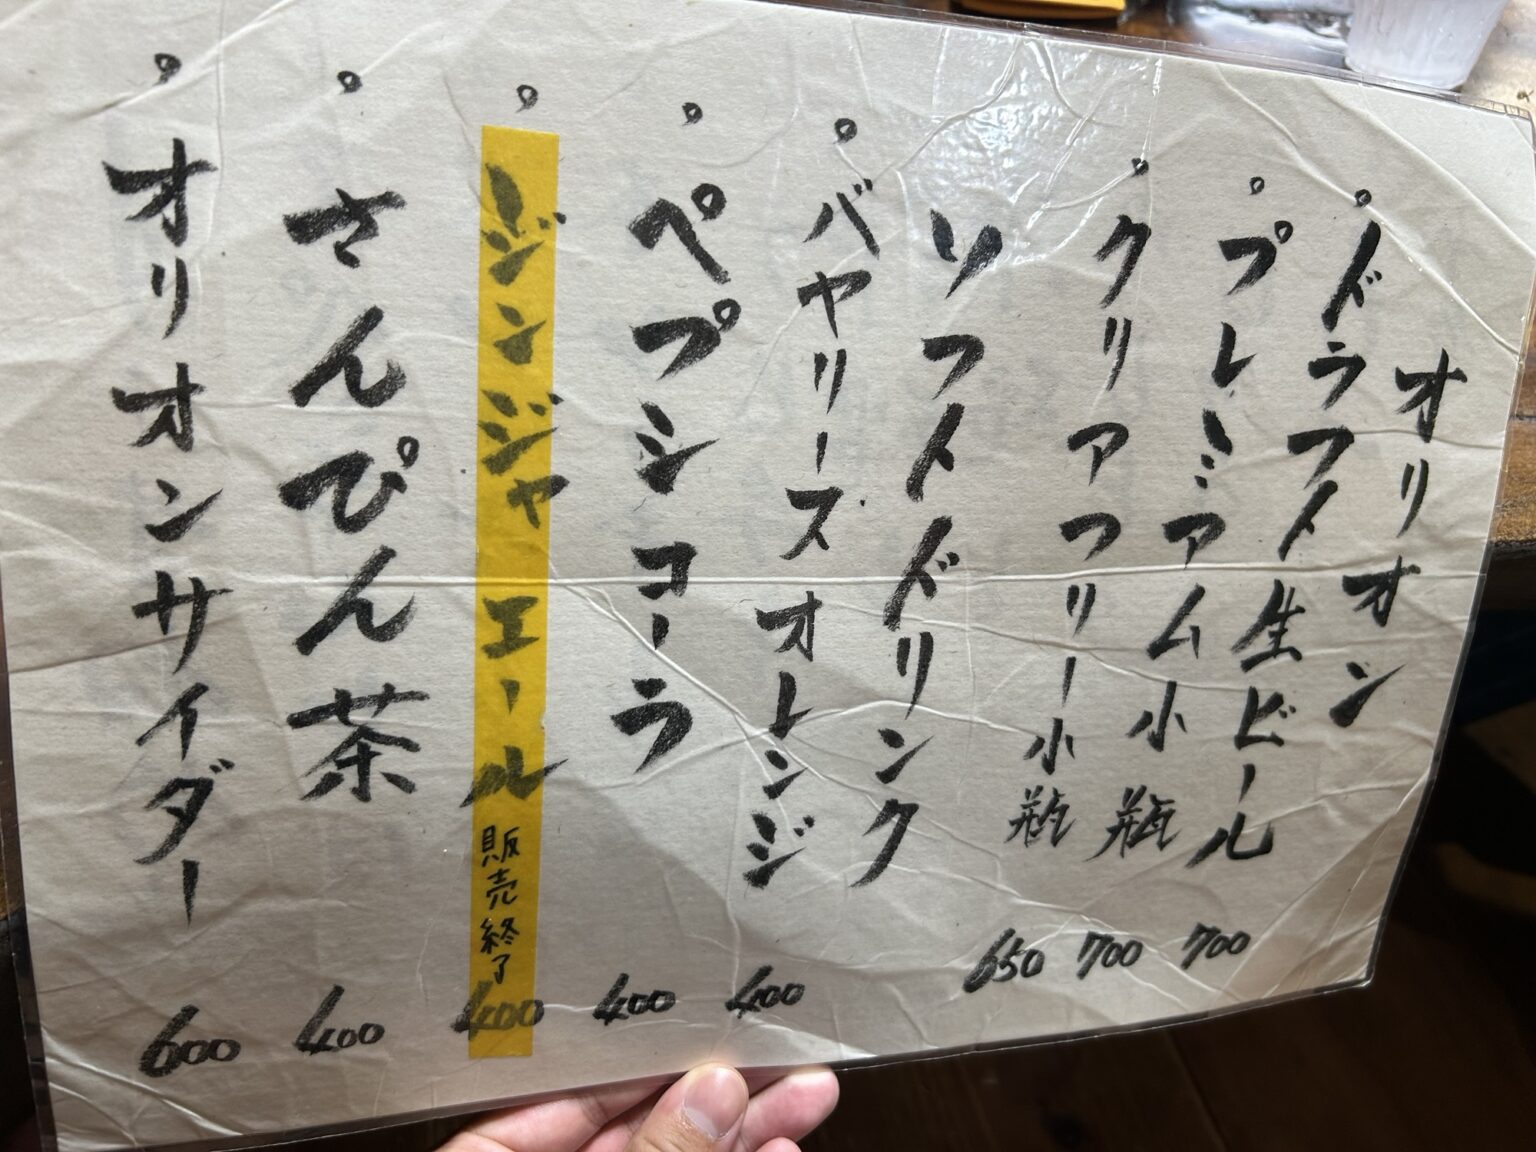 オリオン
ドラフト生ビール 700
プレミアム小瓶 700
クリアフリー小瓶 650
ソフトドリンク
バヤリースオレンジ 400
ペプシコーラ 400
ジンジャエール 販売終了 400
さんぴん茶 400
オリオンサイダー 600